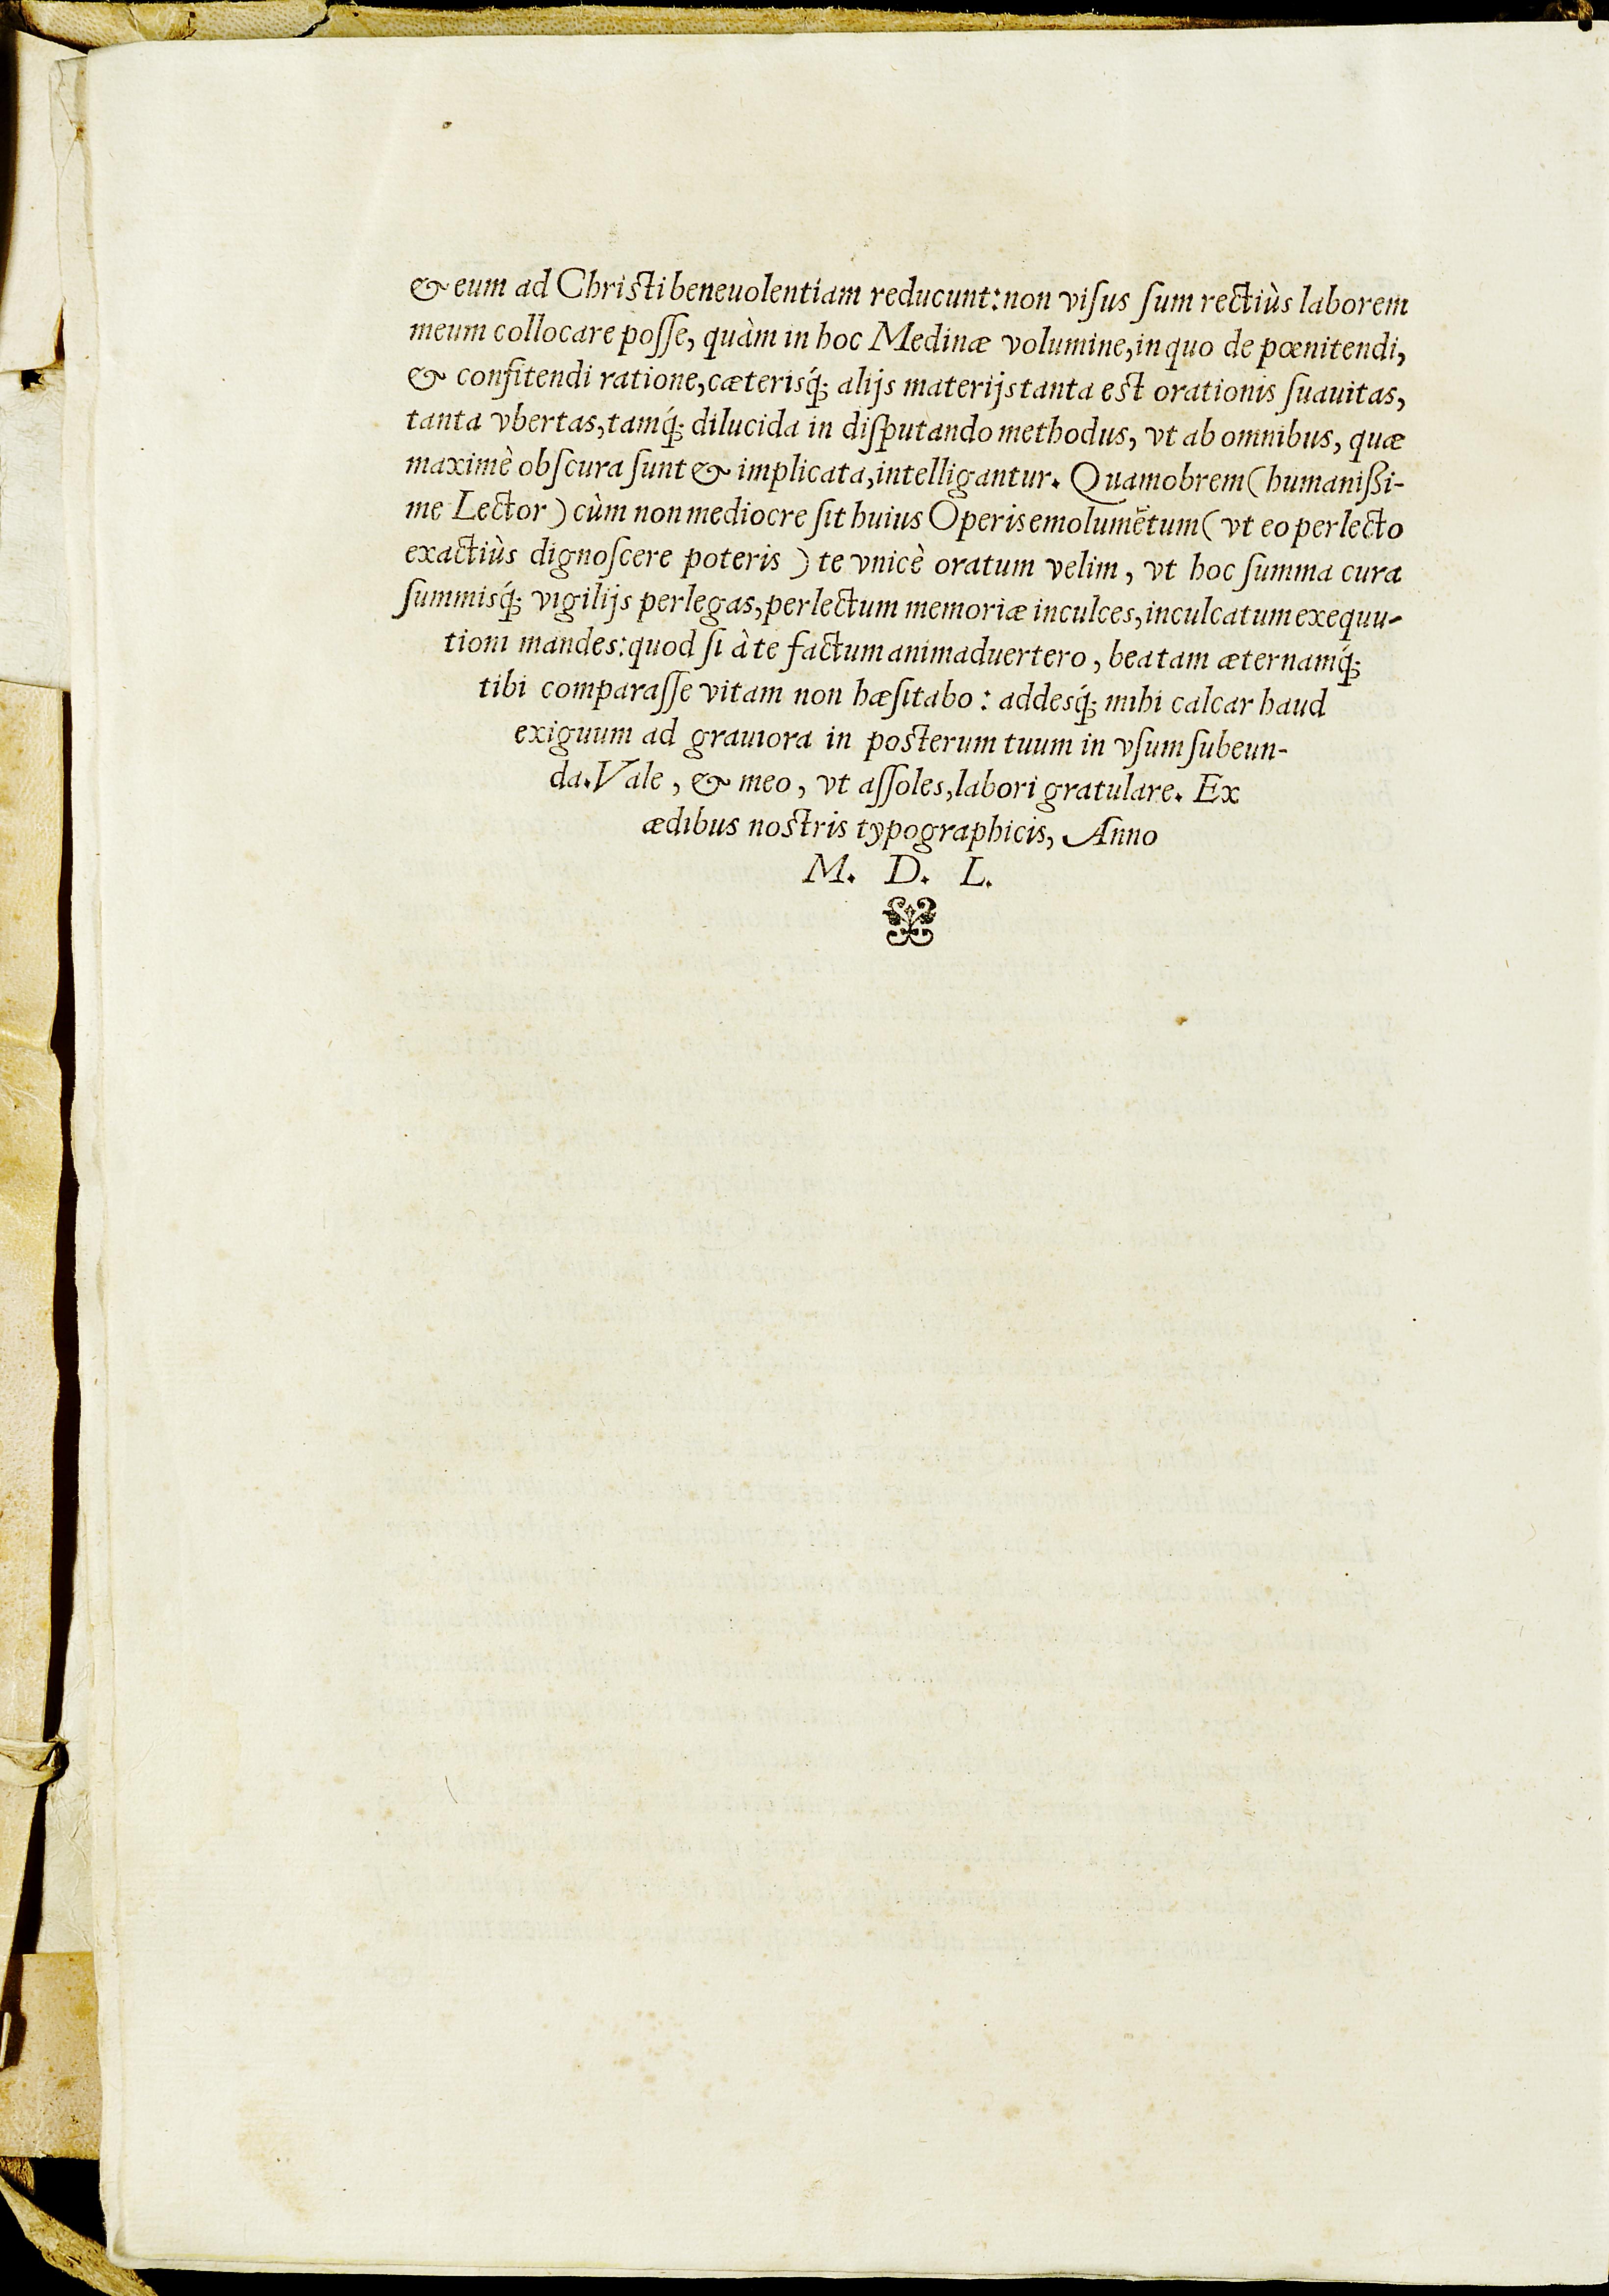 & eum ad Christi beneuolentiam reducunt: non viſus ſum rectiùs laborem
meum collocare poſſe, quàm in hoc Medinæ volumine, in quo de pœnitendi,
& confitendi ratione, cæterisq́; alijs materijs tanta est orationis ſuauitas,
tanta vbertas, tamq́; dilucida in diſputando methodus, vt ab omnibus, quæ
maximè obſcura ſunt & implicata, intelligantur. Quamobrem (humaniſsi-
me Lector) cùm non mediocre ſit huius Operis emolumẽtum (vt eo perlecto
exactiùs dignoſcere poteris) te vnicè oratum velim, vt hoc ſumma cura
ſummisq́; vigilijs perlegas, perlectum memoriæ inculces, inculcatum exequu-
tioni mandes: quod ſi à te factum animaduertero, beatam æternamq́;
tibi comparaſſe vitam non hæſitabo: addesq́; mihi calcar haud
exiguum ad grauiora in posterum tuum in vſum ſubeun-
da. Vale, & meo, vt aſſoles, labori gratulare. Ex
ædibus nostris typographicis, Anno
M. D. L.